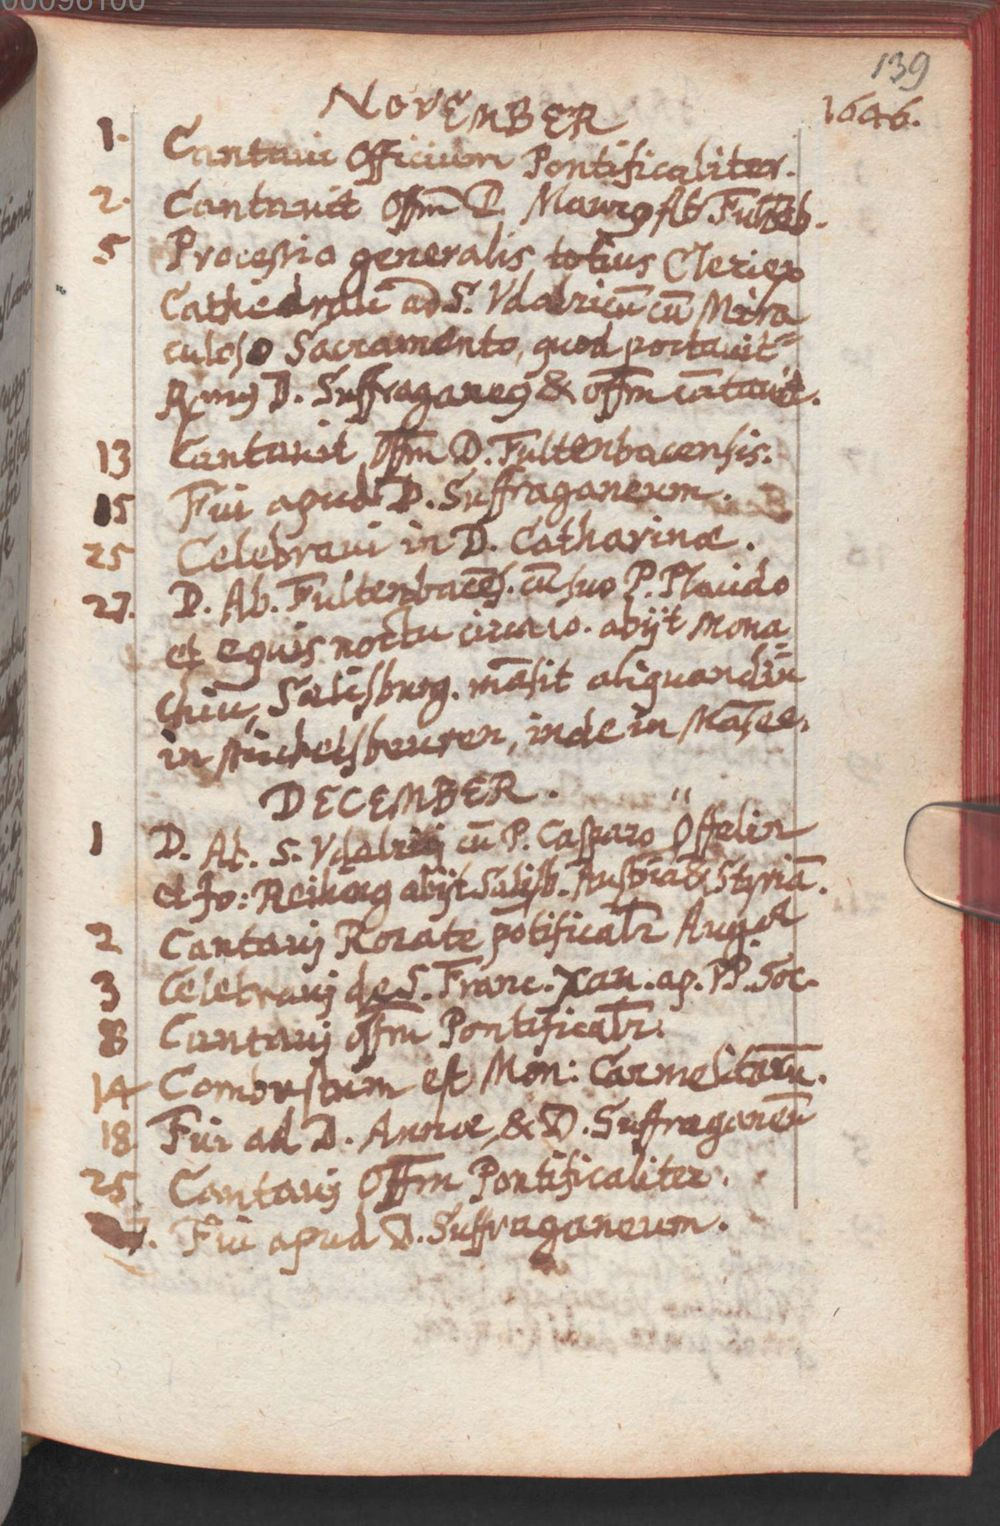 00096100
139
NOVEMBER
1646.
1. Cantaui Officium Pontificaliter.
2. Cantavit Offm D. Maurg Ab Fulteb.
5 Processio generalis totius Cleri ex
Cathedrali ad S. Vdalricū cū Mira
culoso Sacramento, quod portauit
Rmg D. Suffraganeg & offm cātauit.
13 Cantavit Offm D. Fultenbacensis.
15 Fui apud D. Suffraganeum.
25 Celebraui in D. Catharinæ.
27. D. Ab. Fultenbacēs. cū suo P. Placido
et equis noctu circa 10. abijt Mona
chiū, Salisburg. māsit aliquandiu
in Michelsbeuren, inde in Māsee.
DECEMBER.
1 D. Ab. S. Vdalrici cū P. Casparo Öffelin
et Jo: Reiherg abijt Salisb. Austriā & Styriā.
2 Cantavj Rorate pōtificalr Augæ
3 Celebravj de S. Franc. Xau. ap. PP. Soc.
8 Cantavj offm Pontificalr.
14 Combustum est Mon: Carmelitarū.
18 Fui ad D. Annæ & D. Suffraganeū
25. Cantavj Offm Pontificaliter.
7. Fui apud D. Suffraganeum.